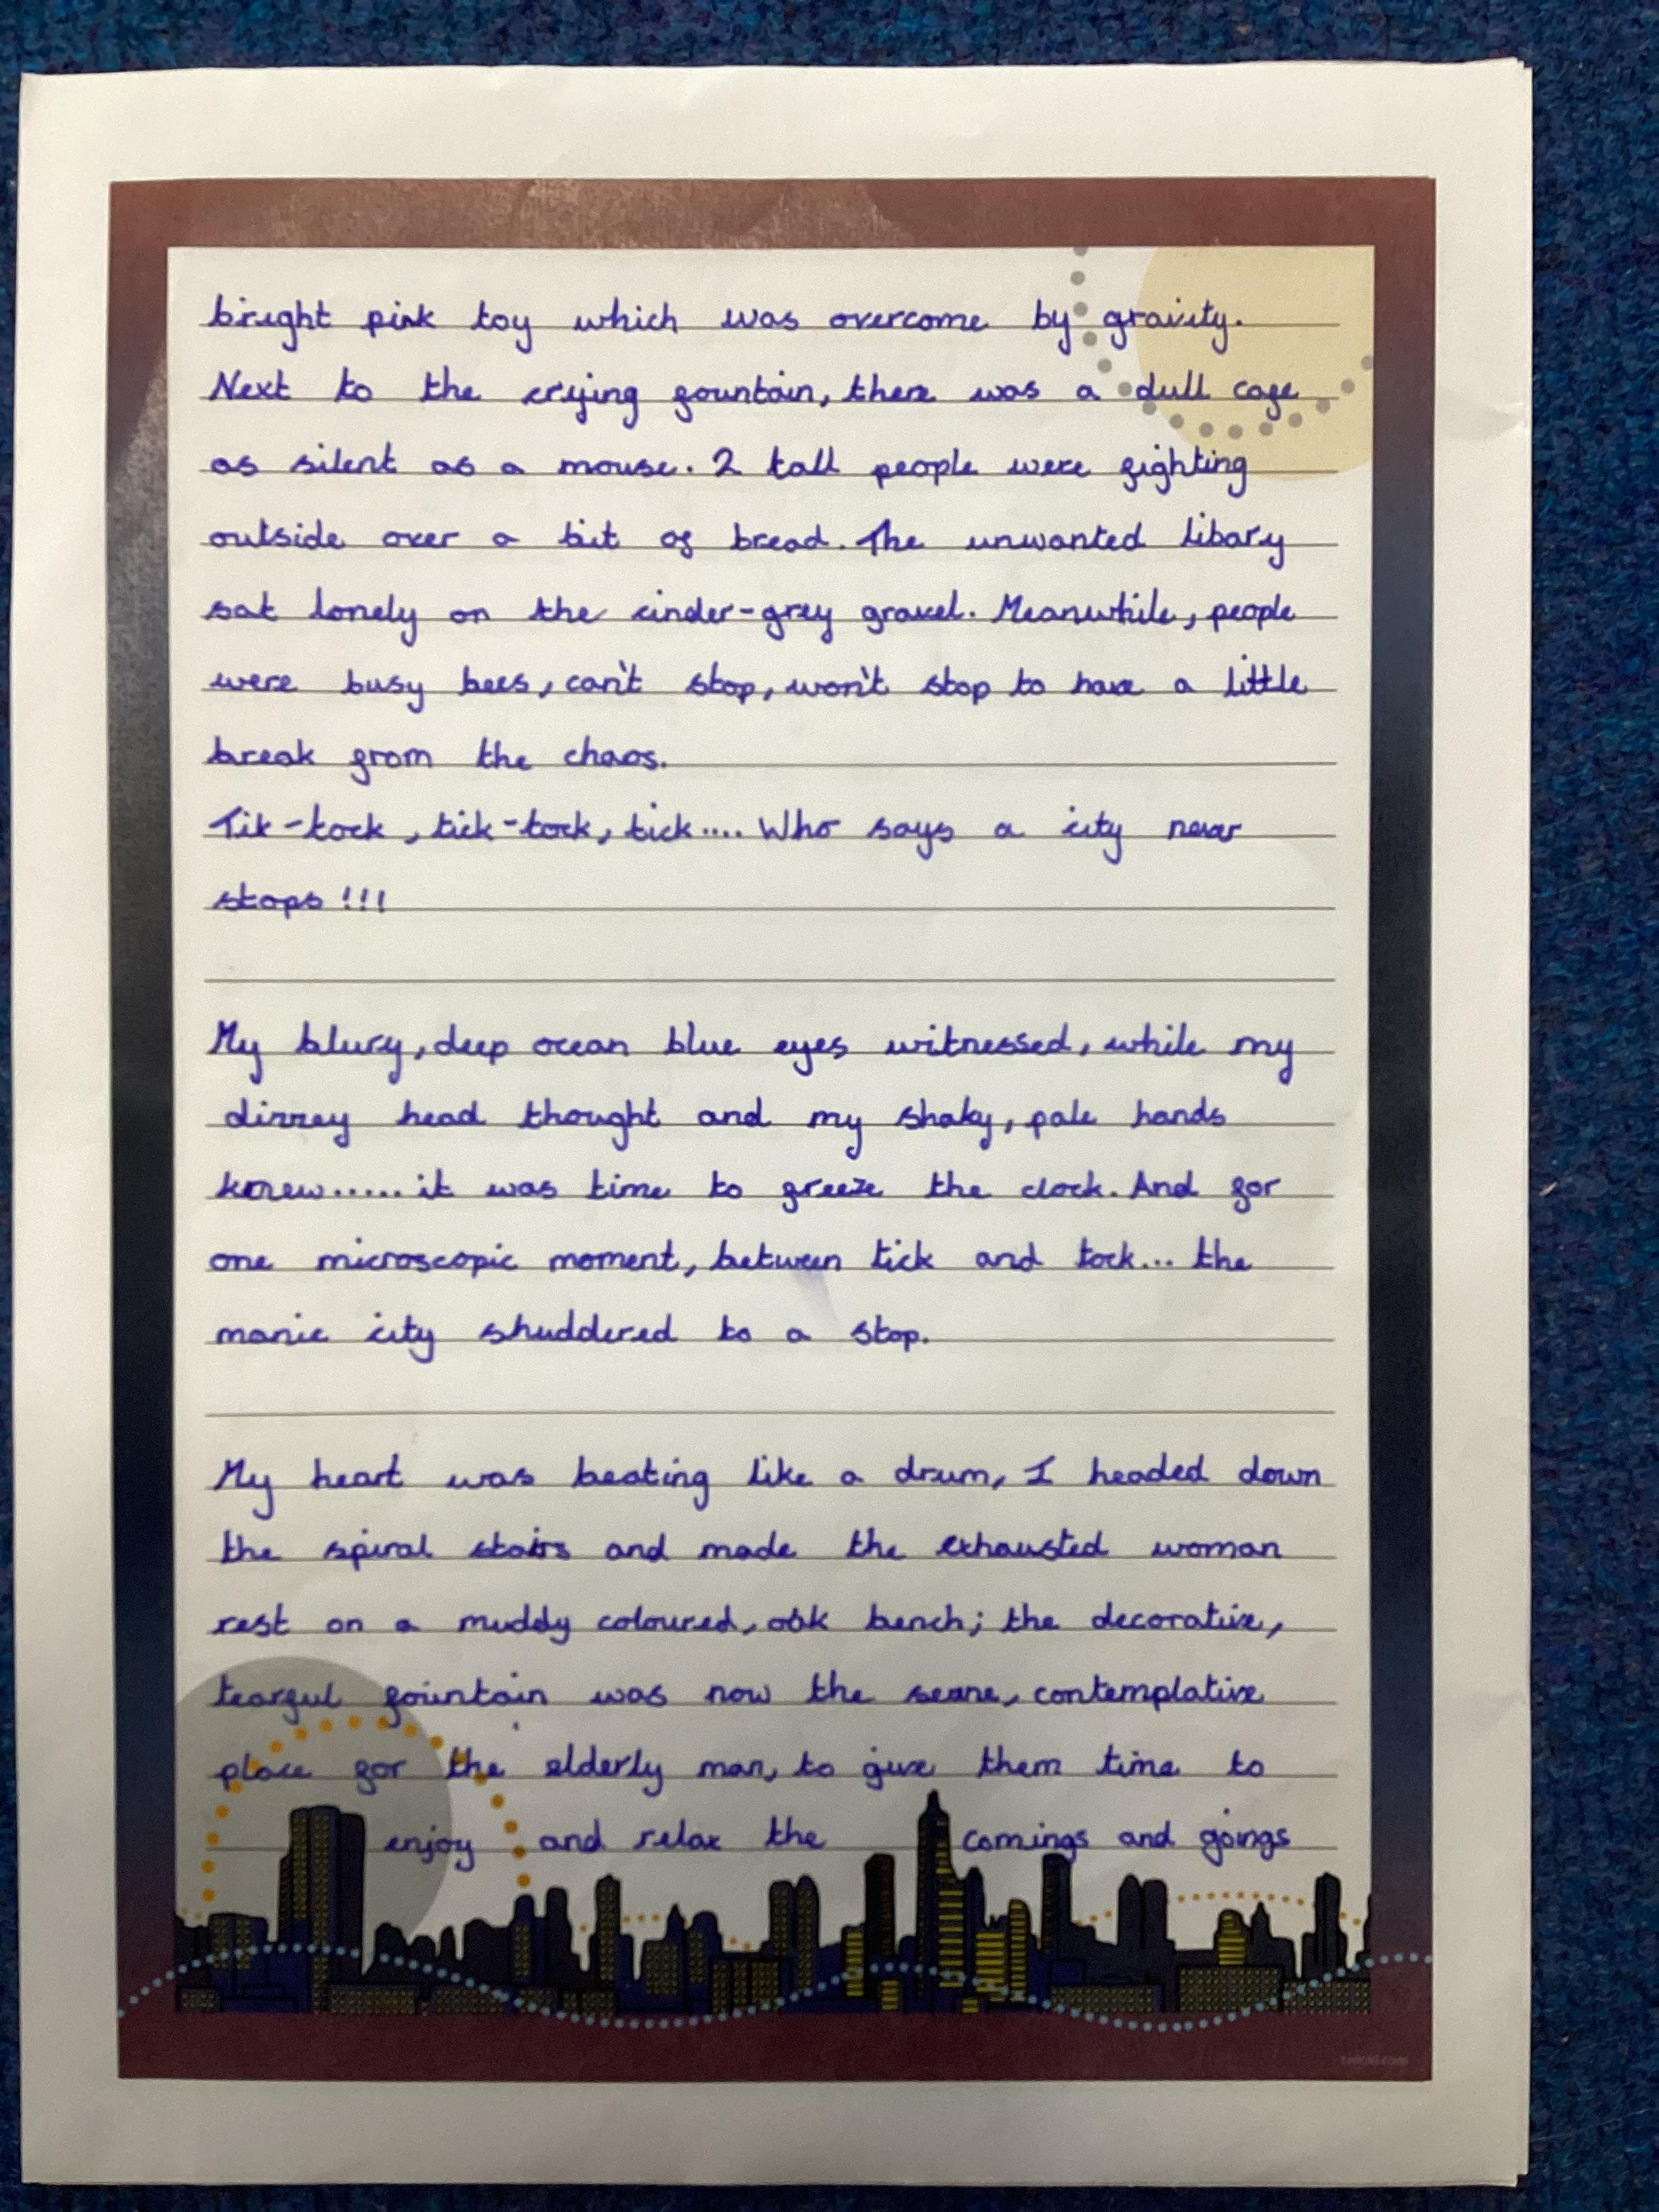 bright pink toy which was overcome by gravity.
Next to the crying fountain, there was a dull cafe
as silent as a mouse. 2 tall people were fighting
outside over a bit of bread. The unwanted libary
sat lonely on the cinder-grey gravel. Meanwhile, people
were busy bees, can't stop, won't stop to have a little
break from the chaos.
Tik-tock, tick-tock, tick.... Who says a city never
stops!!!
My blury, deep ocean blue eyes witnessed, while my
dizzey head thought and my shaky, pale hands
knew...... it was time to freeze the clock. And for
one microscopic moment, between tick and tock... the
manic city shuddered to a stop.
My heart was beating like a drum, I headed down
the spiral stairs and made the exhausted woman
rest on a muddy coloured, oak bench; the decorative,
tearful fountain was now the serne, contemplative
place for the elderly man, to give them time to
enjoy and relax the comings and goings